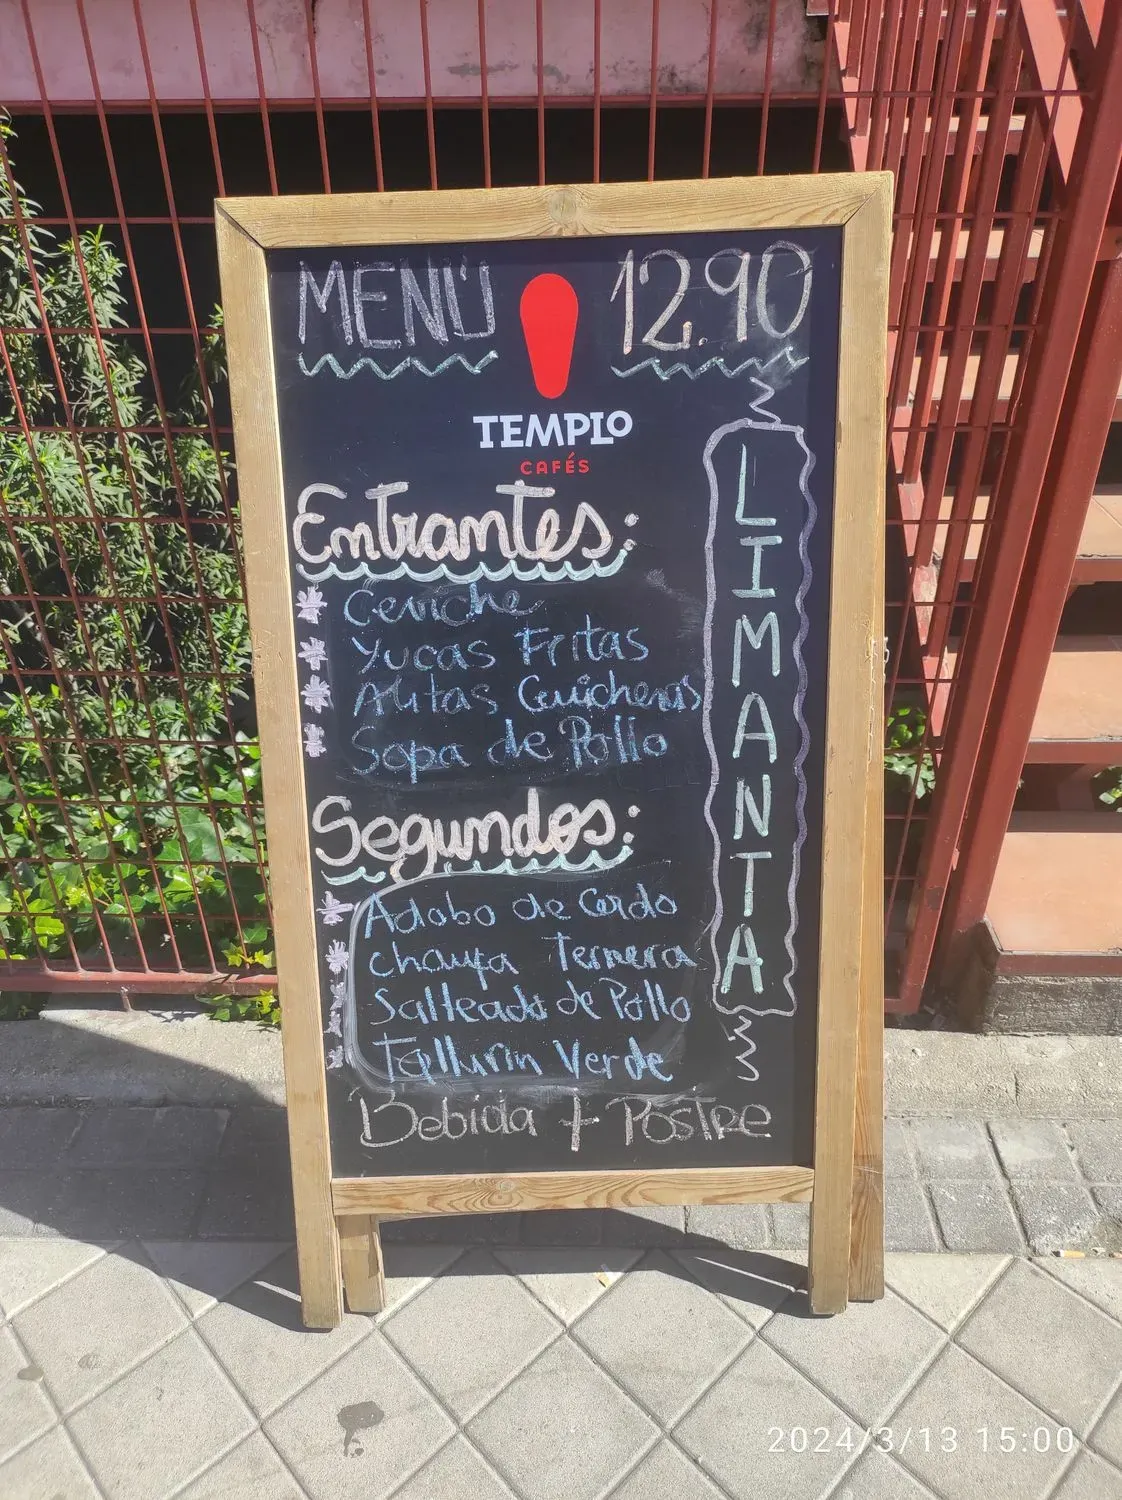 MENÚ
12.90
TEMPLO
CAFÉS
Entrantes:
Ceviche
Yucas Fritas
Alitas
Sopa de Pollo
Segundos:
Adobo de Cerdo
chaufa Ternera
Salteado de Pollo
Tallurin Verde
Bebida + Postre
LIMANTA
2024/3/13 15:00